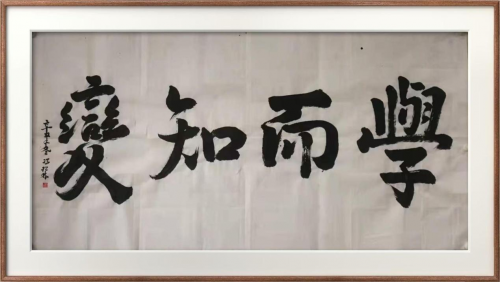 學而知變